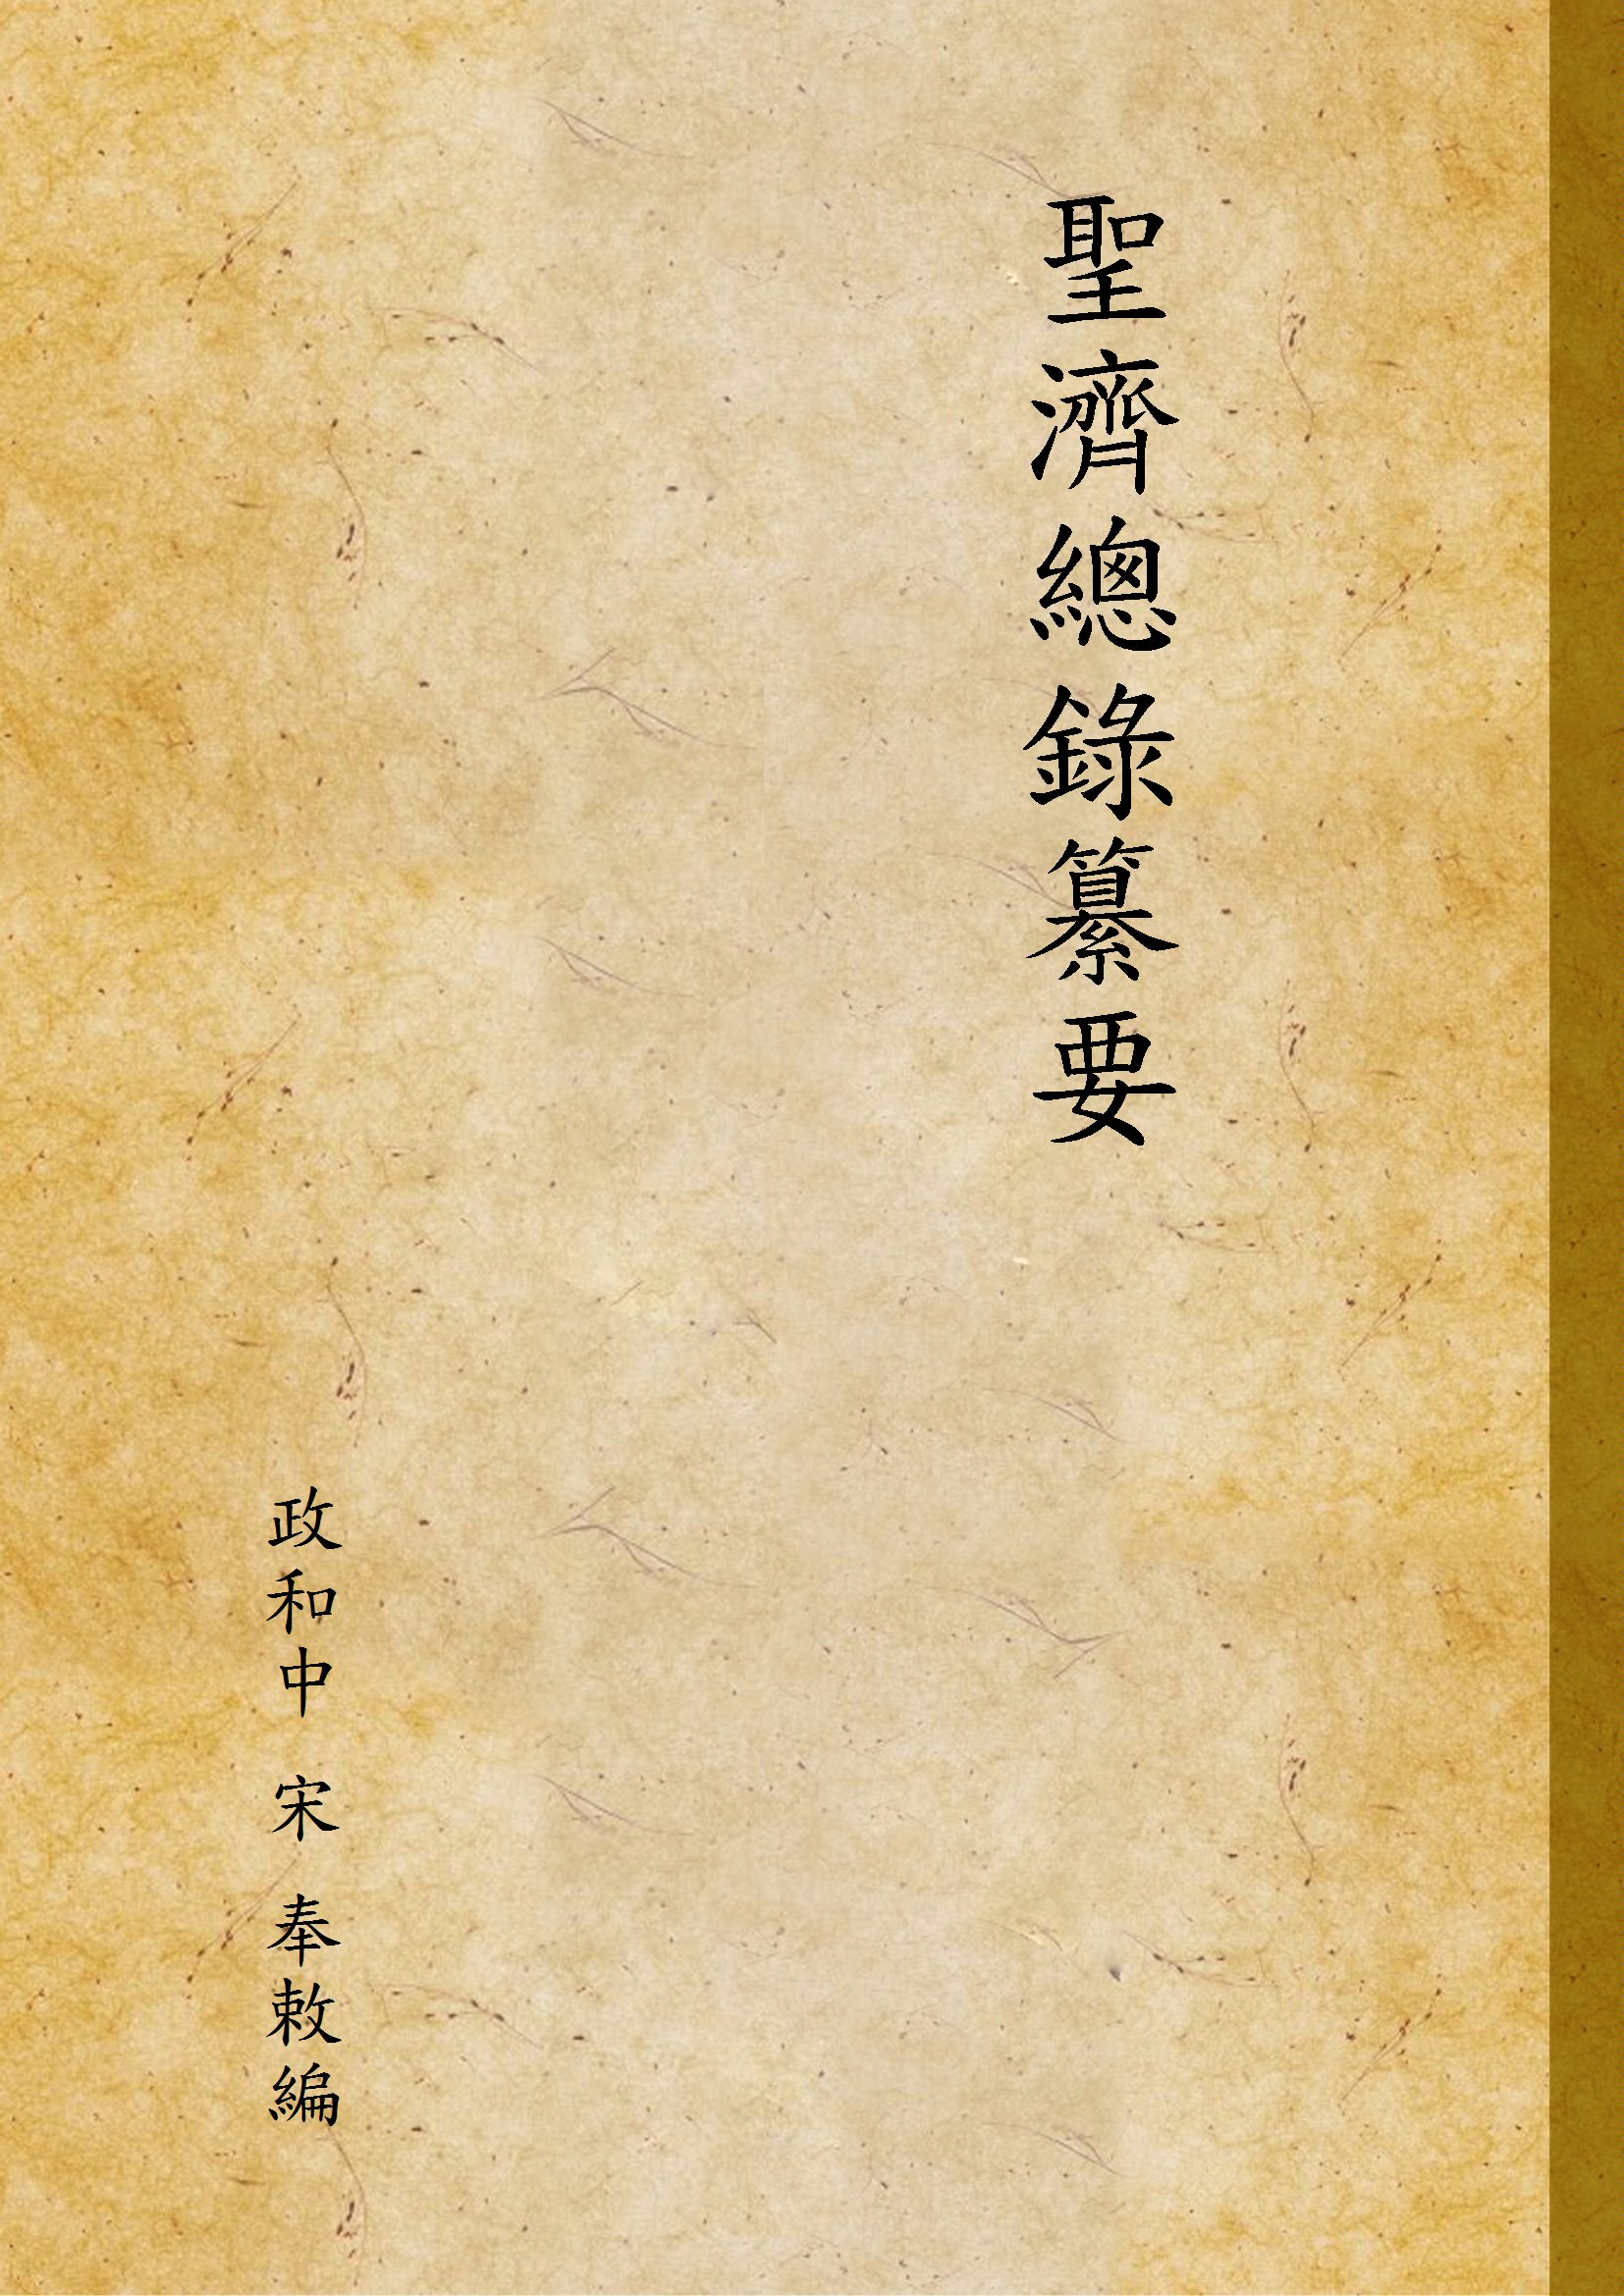 聖濟總錄纂要
政和中 宋 奉敕編